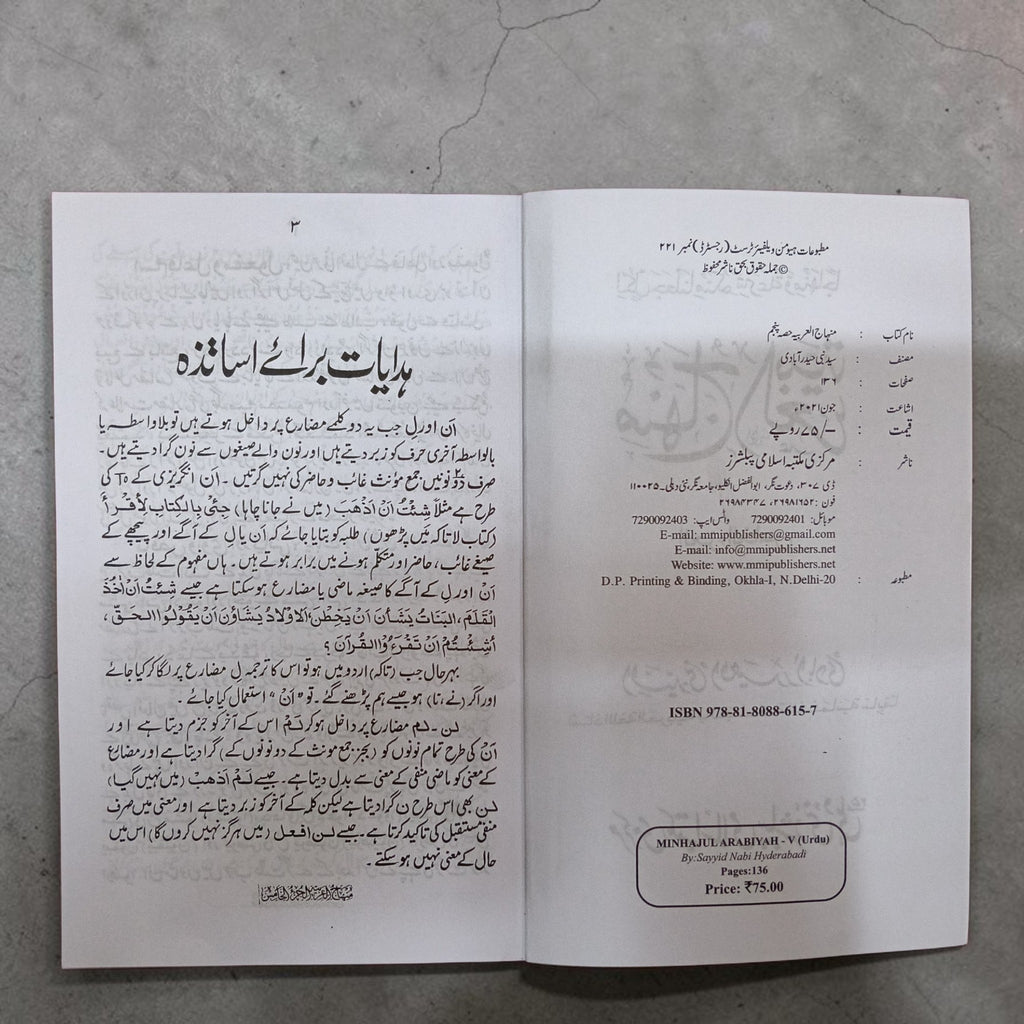 مطبوعات ہیومن ویلفیئر ٹرسٹ (رجسٹرڈ) نمبر ۲۲۱
© جملہ حقوق بحق ناشر محفوظ
نام کتاب : منہاج العربیہ حصہ پنجم
مصنف : سید نبی حیدرآبادی
صفحات : ۱۳۶
اشاعت : جون ۲۰۲۱ء
قیمت : ۷۵/- روپے
ناشر : مرکزی مکتبہ اسلامی پبلشرز
ڈی ۳۰۷، دعوت نگر، ابوالفضل انکلیو، جامعہ نگر، نئی دہلی۔۱۱۰۰۲۵
فون: ۲۶۹۸۱۶۵۲، ۲۶۹۸۴۳۴۷
موبائل: 7290092401 واٹس ایپ: 7290092403
E-mail: mmipublishers@gmail.com
E-mail: info@mmipublishers.net
Website: www.mmipublishers.net
مطبوعہ : D.P. Printing & Binding, Okhla-I, N.Delhi-20
ISBN 978-81-8088-615-7
MINHAJUL ARABIYAH - V (Urdu)
By:Sayyid Nabi Hyderabadi
Pages:136
Price: ₹75.00
۳
ہدایات برائے اساتذہ
اَن اور لِ جب یہ دو کلمے مضارع پر داخل ہوتے ہیں تو بلاواسطہ یا
بالواسطہ آخری حرف کو زبر دیتے ہیں اور نون والے صیغوں سے نون گرا دیتے ہیں۔
صرف دو نونیں جمع مؤنث غائب و حاضر کی نہیں گرتیں۔ اَن انگریزی کے To کی
طرح ہے مثلاً شِئْتُ اَنْ اَذْهَبَ (میں نے جانا چاہا) جِئْنِی بِالْكِتَابِ لِأَقْرَأَ
(کتاب لا تاکہ میں پڑھوں) طلبہ کو بتایا جائے کہ اَن یا لِ کے آگے اور پیچھے کے
صیغے غائب، حاضر اور متکلم ہونے میں برابر ہوتے ہیں۔ ہاں مفہوم کے لحاظ سے
اَنْ اور لِ کے آگے کا صیغہ ماضی یا مضارع ہو سکتا ہے جیسے شِئْتُ اَنْ اٰخُذَ
الْقَلَمَ، اَلْبَنَاتُ يَشَأْنَ اَنْ يَخِطْنَ، اَلْاَوْلَادُ يَشَاؤُنَ اَنْ يَقُوْلُوا الْحَقَّ،
أَشِئْتُمْ اَنْ تَقْرَءُوا الْقُرْآنَ ؟
بہرحال جب (تاکہ) اردو میں ہو تو اس کا ترجمہ لِ مضارع پر لگا کر کیا جائے
اور اگر (نے، نا) ہو جیسے ہم پڑھنے گئے۔ تو "اَنْ" استعمال کیا جائے۔
لن۔ لم مضارع پر داخل ہو کر لَمْ اس کے آخر کو جزم دیتا ہے اور
اَنْ کی طرح تمام نونوں کو (بجز جمع مونث کے دو نونوں کے) گرا دیتا ہے اور مضارع
کے معنی کو ماضی منفی کے معنی سے بدل دیتا ہے۔ جیسے لَمْ اَذْهَبْ (میں نہیں گیا)
لن بھی اس طرح ن گرا دیتا ہے لیکن کلمہ کے آخر کو زبر دیتا ہے اور معنی میں صرف
منفی مستقبل کی تاکید کرتا ہے۔ جیسے لن افعل (میں ہرگز نہیں کروں گا) اس میں
حال کے معنی نہیں ہو سکتے۔
منہاج العربیہ الجزء الخامس